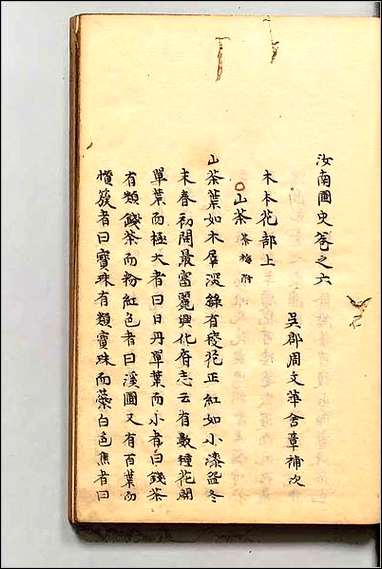 汝南圃史卷之六
吳郡周文華含章補次
木本花部上
山茶 茶梅附
山茶葉如木犀深綠有稜花正紅如小漆盌冬
末春初開最富麗興化府志云有數種花開
單葉而極大者曰日丹單葉而小者曰錢茶
有類錢茶而粉紅色者曰溪圃又有百葉而
攢簇者曰寶珠有類寶珠而蘂白色焦者曰